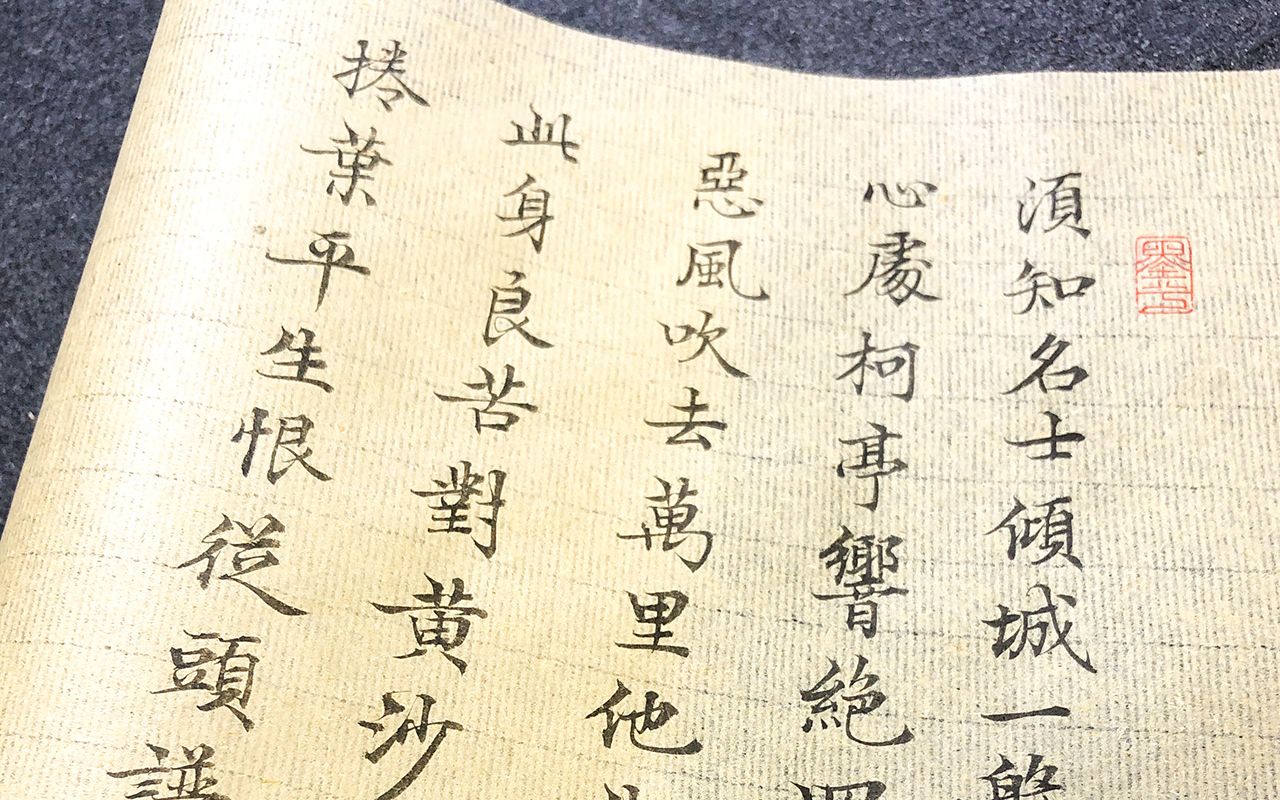 湏知名士傾城一
心處柯亭響絶四
惡風吹去萬里他
此身良苦對黄沙
捲葉平生恨從頭譜